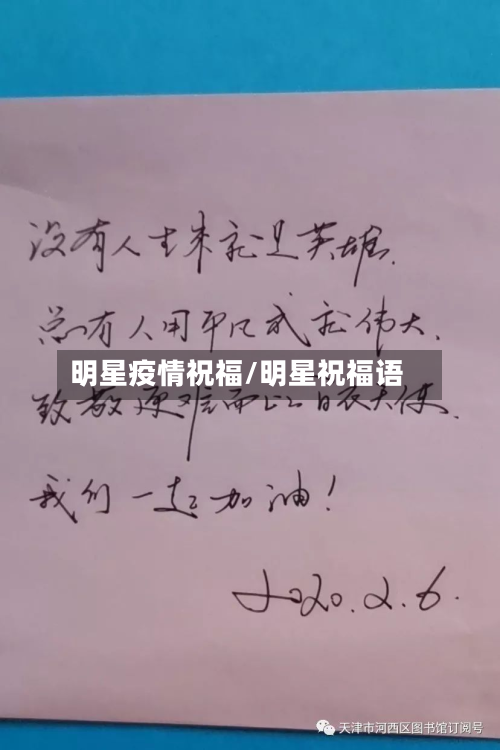 没有人生来就是英雄.
总有人用平凡成就伟大.
明星疫情祝福/明星祝福语
致敬逆难而上白衣天使.
我们一起加油!
2020.2.6.
天津市河西区图书馆订阅号